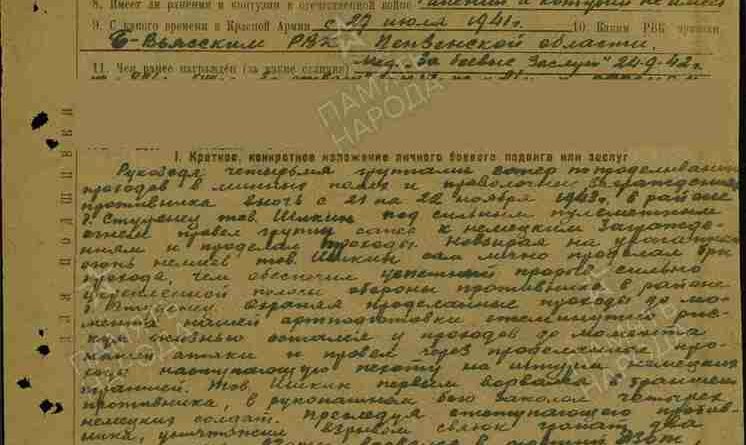 8. Имеет ли ранения и контузии в отечественной войне ранений и контузий не имеет
9. С какого времени в Красной Армии с 27 июля 1941 г. 10. Каким РВК призван
Б-Вьясским РВК, Пензенской области.
11. Чем ранее награждён (за какие отличия) Мед. "За боевые заслуги" 24-9-42 г.
ПАМЯТЬ НАРОДА
I. Краткое, конкретное изложение личного боевого подвига или заслуг
Руководя четырьмя группами сапер по проделыванию
проходов в минных полях и проволочных заграждениях
противника в ночь с 21 на 22 ноября 1943 г. в районе
д. Студенец тов. Шикин под сильным пулеметным
огнем провел группу сапер к немецким заграждениям
и проделал проходы. Невзирая на ураганный
огонь немцев тов. Шикин сам лично проделал три
прохода, чем обеспечил успешный прорыв сильно
укрепленной полосы обороны противника в районе
д. Студенец. Охраняя проделанные проходы до мо-
мента нашей артподготовки ежеминутно рис-
куя жизнью остался у проходов до момента
нашей атаки и провел через проделанные про-
ходы наступающую пехоту на штурм немецких
траншей. Тов. Шикин первым ворвался в траншеи
противника, в рукопашном бою заколол четырех
немецких солдат. Преследуя отступающего против-
ника, уничтожил взрывом связок гранат два
ДЛЯ ПОДШИВКИ
ПАМЯТЬ НАРОДА
ПАМЯТЬ НАРОДА